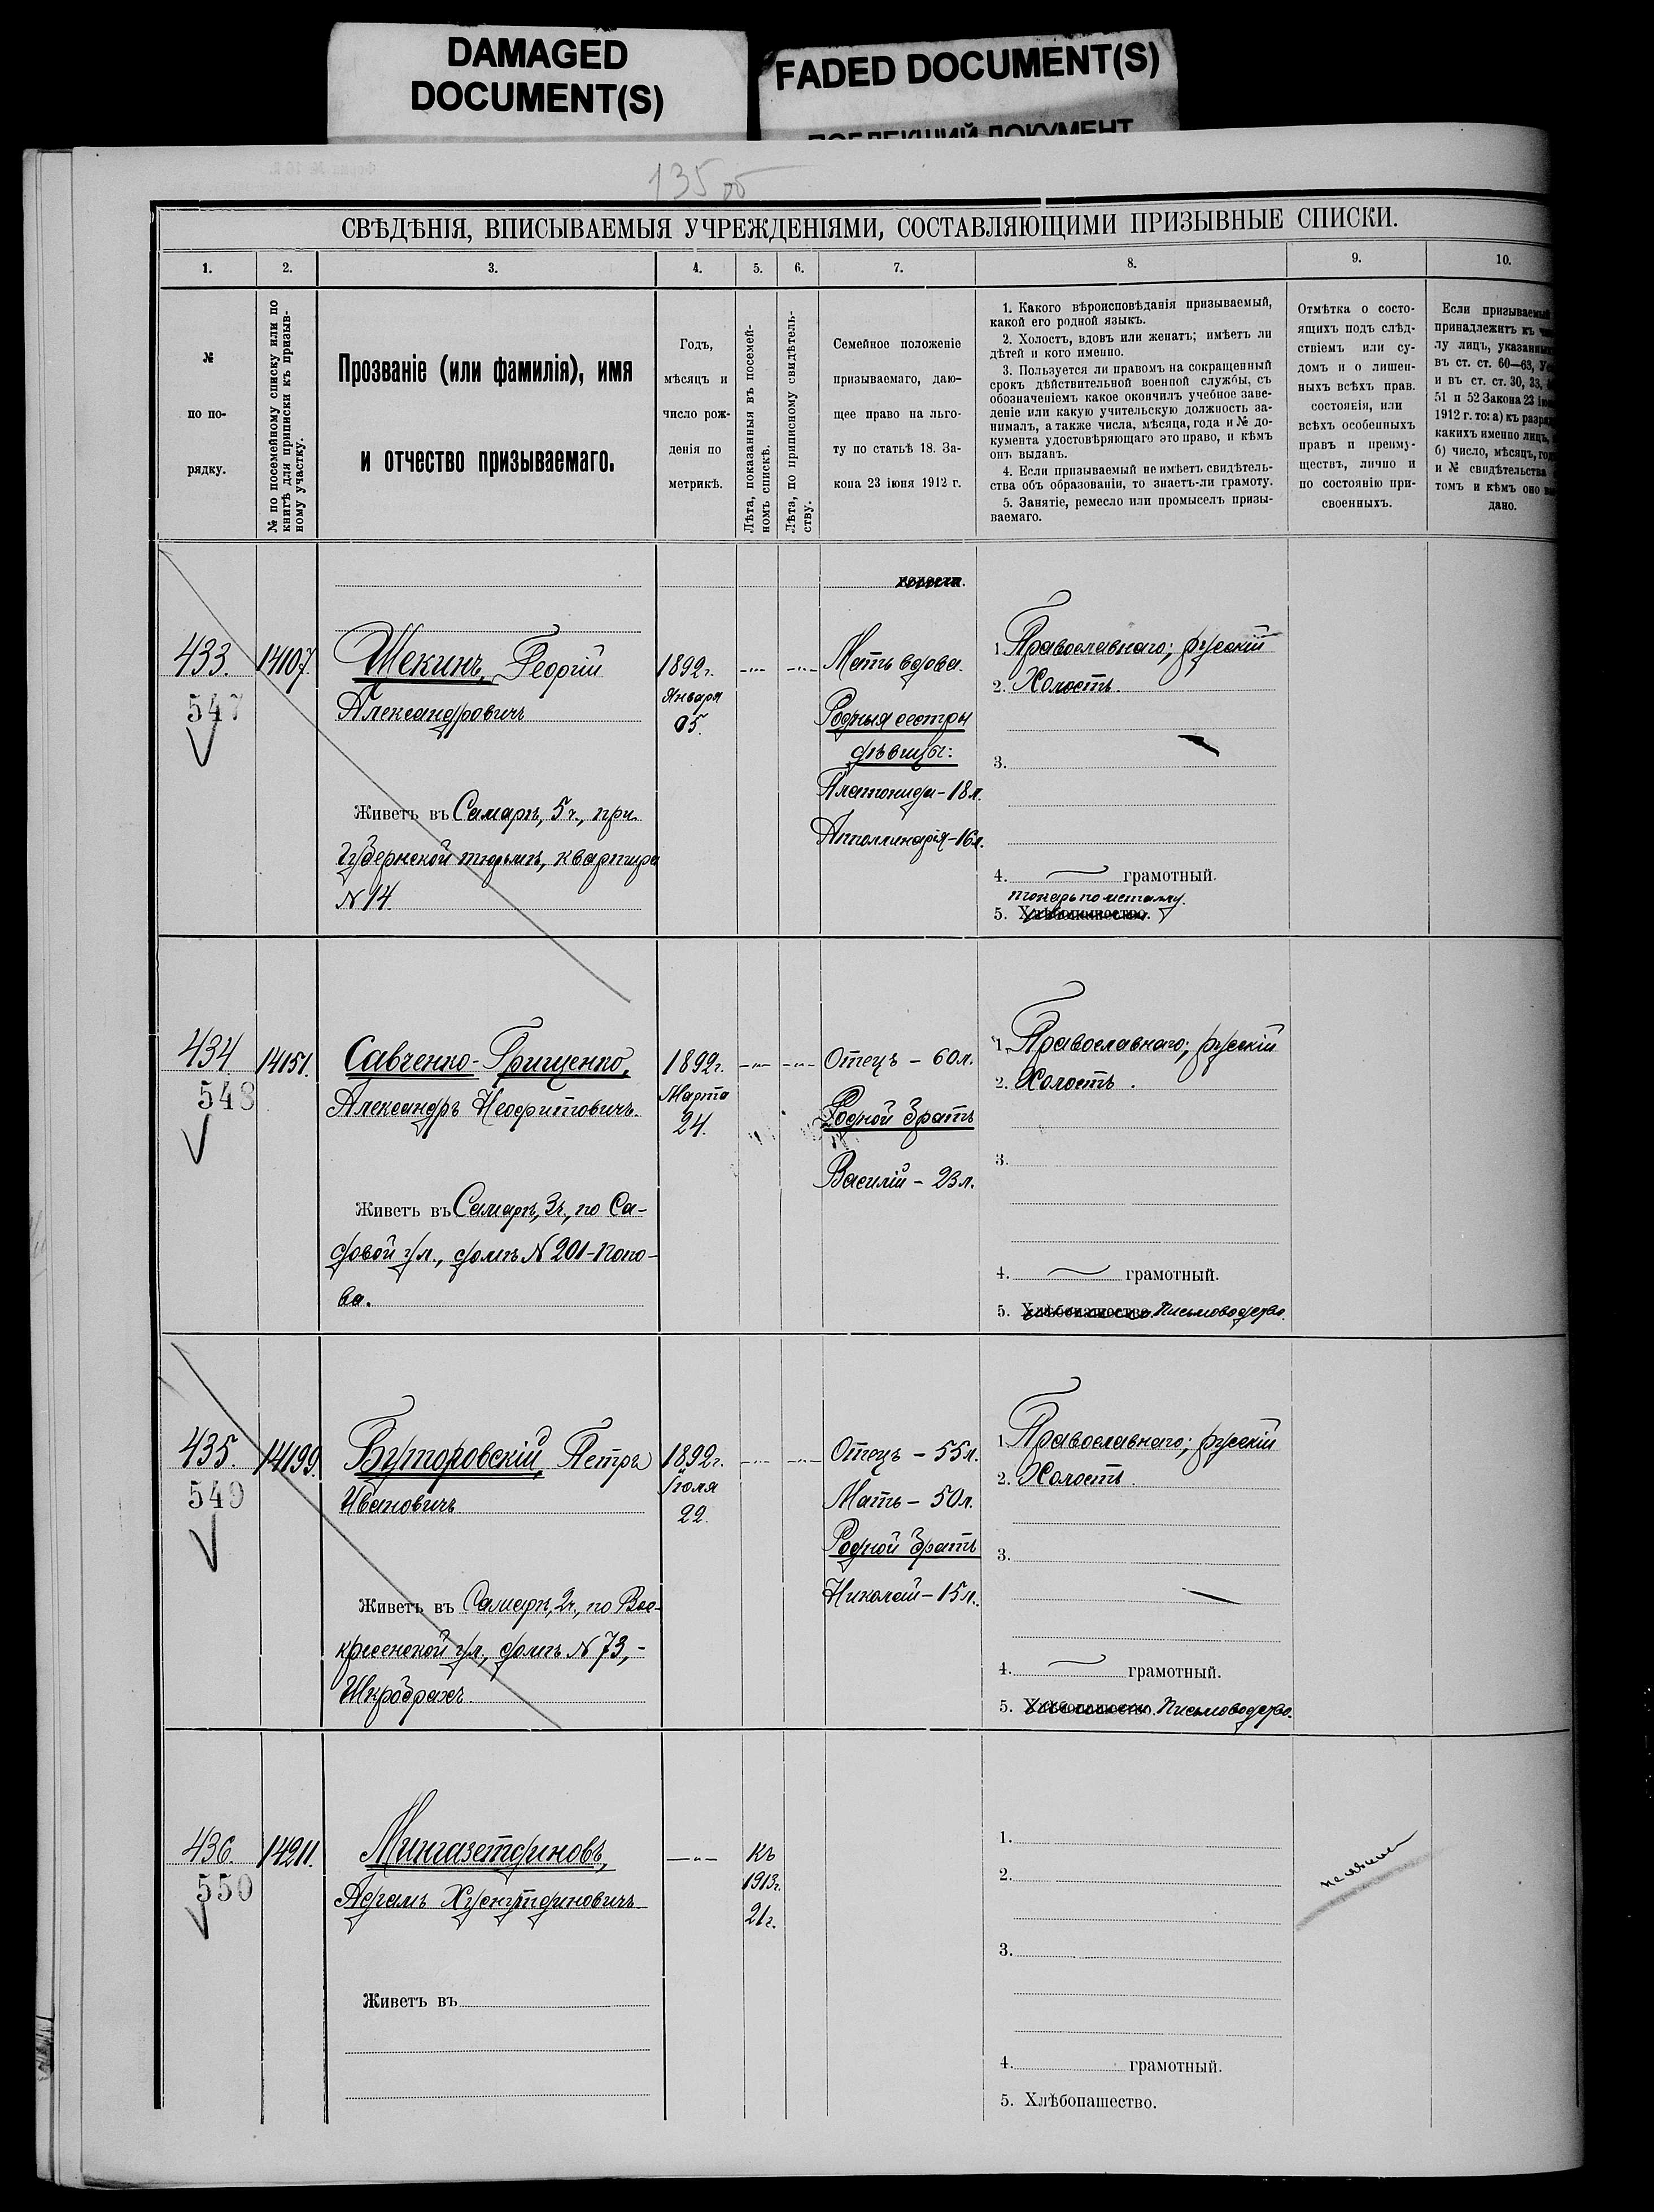 DAMAGED
DOCUMENT(S)
FADED DOCUMENT(S)
ПОБЛЕКШИЙ ДОКУМЕНТ
135 об
СВѢДѢНІЯ, ВПИСЫВАЕМЫЯ УЧРЕЖДЕНІЯМИ, СОСТАВЛЯЮЩИМИ ПРИЗЫВНЫЕ СПИСКИ.
1.
2.
3.
4.
5.
6.
7.
8.
9.
10.
№
по по-
рядку.
№ по посемейному списку или по
книгѣ для приписки къ призыв-
ному участку.
Прозваніе (или фамилія), имя
и отчество призываемаго.
Годъ,
мѣсяцъ и
число рож-
денія по
метрикѣ.
Лѣта, показанныя въ посемей-
номъ спискѣ.
Лѣта, по приписному свидѣтель-
ству.
Семейное положеніе
призываемаго, даю-
щее право на льго-
ту по статьѣ 18. За-
кона 23 іюня 1912 г.
1. Какого вѣроисповѣданія призываемый,
какой его родной языкъ.
2. Холостъ, вдовъ или женатъ; имѣетъ ли
дѣтей и кого именно.
3. Пользуется ли правомъ на сокращенный
срокъ дѣйствительной военной службы, съ
обозначеніемъ какое окончилъ учебное заве-
деніе или какую учительскую должность за-
нималъ, а также числа, мѣсяца, года и № до-
кумента удостовѣряющаго это право, и кѣмъ
онъ выданъ.
4. Если призываемый не имѣетъ свидѣтель-
ства объ образованіи, то знаетъ-ли грамоту.
5. Занятіе, ремесло или промыселъ призы-
ваемаго.
Отмѣтка о состо-
ящихъ подъ слѣд-
ствіемъ или су-
домъ и о лишен-
ныхъ всѣхъ прав.
состоянія, или
всѣхъ особенныхъ
правъ и преиму-
ществъ, лично и
по состоянію при-
своенныхъ.
Если призываемый
принадлежитъ къ
лу лицъ, указанныхъ
въ ст. ст. 60—63,
и въ ст. ст. 30, 33,
51 и 52 Закона 23
1912 г. то: а) къ
какихъ именно лицъ,
б) число, мѣсяцъ,
и № свидѣтельства
томъ и кѣмъ оно
дано.
волости.
433.
547
14107.
Щекинъ, Георгій
Александровичъ
Живетъ въ Самарѣ, 5 ч., при
Губернской тюрьмѣ, квартира
№ 14
1892 г.
Января
05.
Мать вдова.
Родныя сестры
дѣвицы:
Платонида – 18 л.
Апполлинарія – 16 л.
1. Православнаго; русскій
2. Холостъ.
3.
4. грамотный.
токарь по металлу.
5. Хлѣбопашество.
434.
548
14151.
Савченко-Грищенко,
Александръ Неофитовичъ.
Живетъ въ Самарѣ, 3 ч., по Са-
довой ул., домъ № 201 – Попо-
ва.
1892 г.
Марта
24.
Отецъ – 60 л.
Родной братъ
Василій – 23 л.
1. Православнаго; русскій
2. Холостъ.
3.
4. грамотный.
5. Хлѣбопашество. Письмоводство.
435.
549
14199.
Буторовскій, Петръ
Ивановичъ
Живетъ въ Самарѣ, 2 ч., по Вос-
кресенской ул., домъ № 73, –
1892 г.
Іюля
22.
Отецъ – 55 л.
Мать – 50 л.
Родной братъ
Николай – 15 л.
1. Православнаго; русскій
2. Холостъ.
3.
4. грамотный.
5. Хлѣбопашество. Письмоводство.
436.
550
14211.
Мингазетдиновъ,
Адгамъ Хуснутдиновичъ
Живетъ въ
къ
1913 г.
21 г.
1.
2.
3.
4. грамотный.
5. Хлѣбопашество.